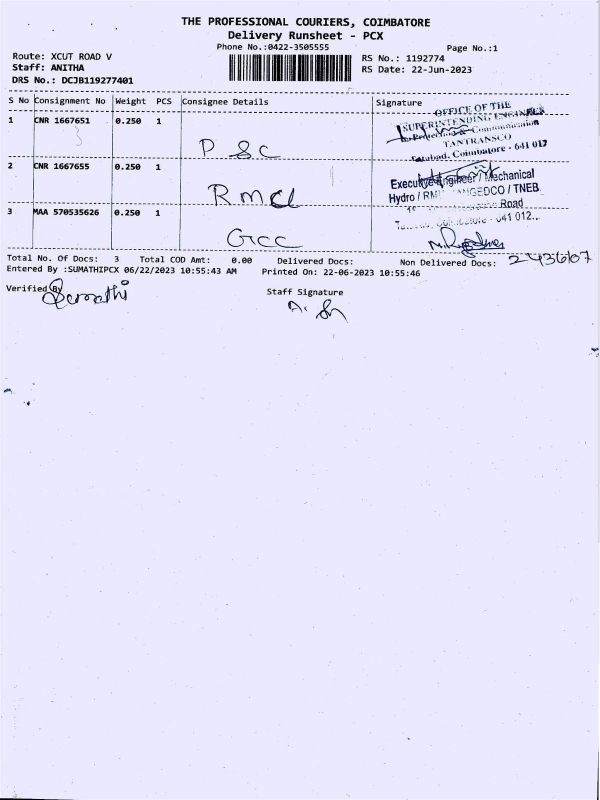 THE PROFESSIONAL COURIERS, COIMBATORE
Delivery Runsheet - PCX
Phone No.:0422-3505555
Page No.:1
Route: XCUT ROAD V
RS No.: 1192774
Staff: ANITHA
RS Date: 22-Jun-2023
DRS No.: DCJB119277401
S No Consignment No Weight PCS Consignee Details Signature
OFFICE OF THE
1 CNR 1667651 0.250 1
SUPERINTENDING ENGINEER
Communication
P & C
TANTRANSCO
Tatabad, Coimbatore - 641 012
2 CNR 1667655 0.250 1
Executive Engineer / Mechanical
RMCL
Hydro / ANGEDCO / TNEB
Road
3 MAA 570535626 0.250 1
641 012..
GCC
Total No. Of Docs: 3 Total COD Amt: 0.00 Delivered Docs: Non Delivered Docs: 2436607
Entered By :SUMATHIPCX 06/22/2023 10:55:43 AM Printed On: 22-06-2023 10:55:46
Verified By
Staff Signature